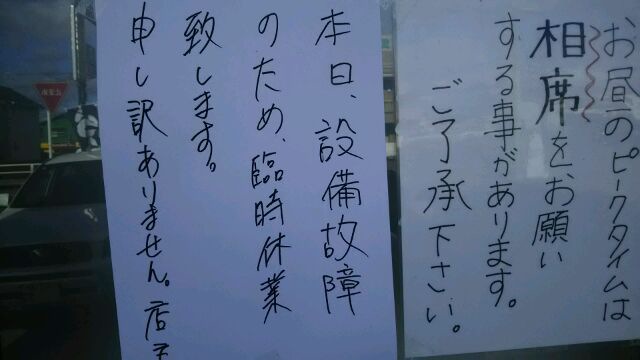 お昼のピークタイムは
相席をお願い
する事があります。
ご了承下さい。
本日、設備故障
のため、臨時休業
致します。
申し訳ありません。店